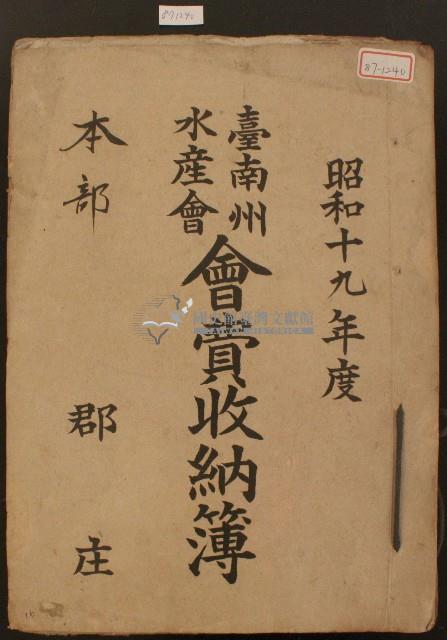 87-1240
87-1240
昭和十九年度
臺南州
水産會
會費收納簿
本部
郡
庄
國史館臺灣文獻館